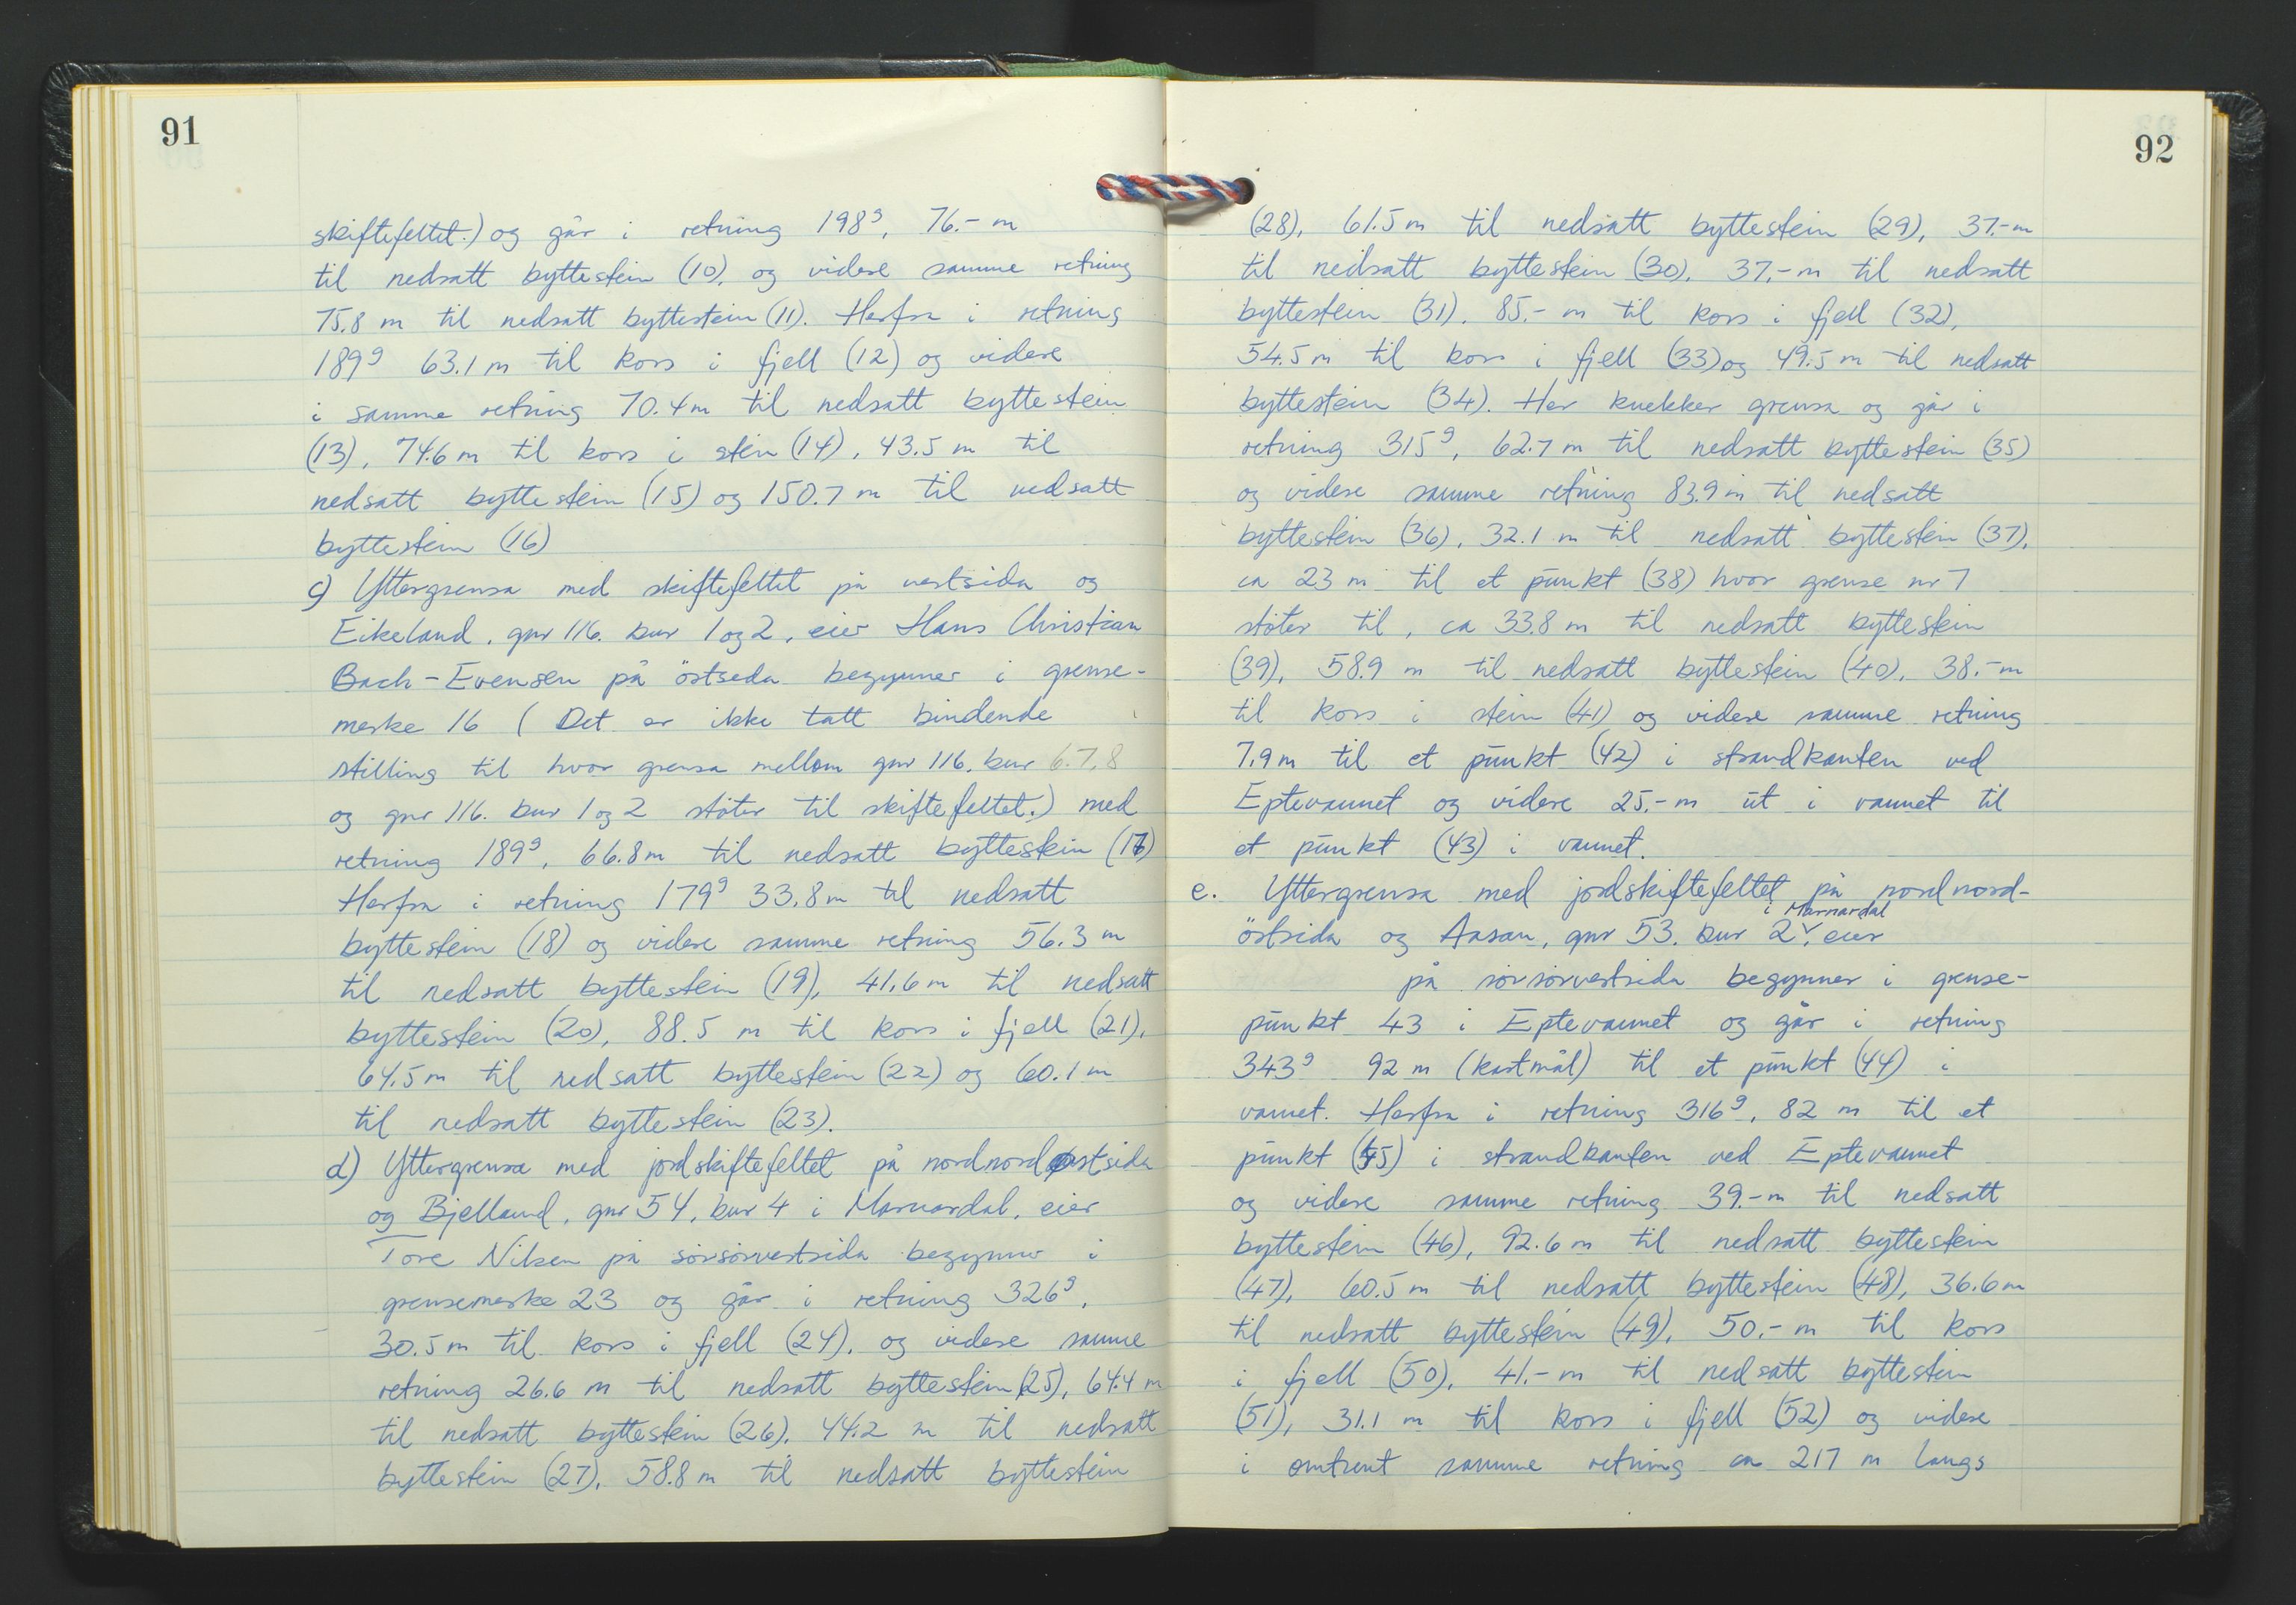 91
skiftefeltet.) og går i retning 198ᵍ, 76.- m
til nedsatt byttestein (10), og videre samme retning
75.8 m til nedsatt byttestein (11). Herfra i retning
189ᵍ 63.1 m til kors i fjell (12) og videre
i samme retning 70.4 m til nedsatt byttestein
(13), 74.6 m til kors i stein (14), 43.5 m til
nedsatt byttestein (15) og 150.7 m til nedsatt
byttestein (16)
c) Yttergrensa med skiftefeltet på vestsida og
Eikeland, gnr 116. bnr 1 og 2, eier Hans Christian
Bach-Evensen på östseda begynner i grense-
merke 16 ( Det er ikke tatt bindende
stilling til hvor grensa mellom gnr 116. bnr 6.7.8
og gnr 116. bnr 1 og 2 støter til skiftefeltet.) med
retning 189ᵍ, 66.8 m til nedsatt byttestein (17)
Herfra i retning 179ᵍ 33.8 m til nedsatt
byttestein (18) og videre samme retning 56.3 m
til nedsatt byttestein (19), 41.6 m til nedsatt
byttestein (20), 88.5 m til kors i fjell (21),
64.5 m til nedsatt byttestein (22) og 60.1 m
til nedsatt byttestein (23).
d) Yttergrensa med jordskiftefeltet på nordnordøstsida
og Bjelland, gnr 54, bnr 4 i Marnardal, eier
Tore Nilsen på sørsørvestsida begynner i
grensemerke 23 og går i retning 326ᵍ,
30.5 m til kors i fjell (24), og videre samme
retning 26.6 m til nedsatt byttestein (25), 64.4 m
til nedsatt byttestein (26), 44.2 m til nedsatt
byttestein (27), 58.8 m til nedsatt byttestein
92
(28), 61.5 m til nedsatt byttestein (29), 37.- m
til nedsatt byttestein (30), 37.- m til nedsatt
byttestein (31), 85.- m til kors i fjell (32),
54.5 m til kors i fjell (33) og 49.5 m til nedsatt
byttestein (34). Her knekker grensa og går i
retning 315ᵍ, 62.7 m til nedsatt byttestein (35)
og videre samme retning 83.9 m til nedsatt
byttestein (36), 32.1 m til nedsatt byttestein (37),
ca 23 m til et punkt (38) hvor grense nr 7
støter til, ca 33.8 m til nedsatt byttestein
(39), 58.9 m til nedsatt byttestein (40), 38.- m
til kors i stein (41) og videre samme retning
7.9 m til et punkt (42) i strandkanten ved
Eptevannet og videre 25.- m ut i vannet til
et punkt (43) i vannet.
e. Yttergrensa med jordskiftefeltet på nordnord-
i Marnardal
östsida og Aasan, gnr 53. bnr 2, eier
på sørsørvestsida begynner i grense-
punkt 43 i Eptevannet og går i retning
343ᵍ 92 m (kartmål) til et punkt (44) i
vannet. Herfra i retning 316ᵍ, 82 m til et
punkt (45) i strandkanten ved Eptevannet
og videre samme retning 39.- m til nedsatt
byttestein (46), 92.6 m til nedsatt byttestein
(47), 60.5 m til nedsatt byttestein (48), 36.6 m
til nedsatt byttestein (49), 50.- m til kors
i fjell (50), 41.- m til nedsatt byttestein
(51), 31.1 m til kors i fjell (52) og videre
i omtrent samme retning ca 217 m langs